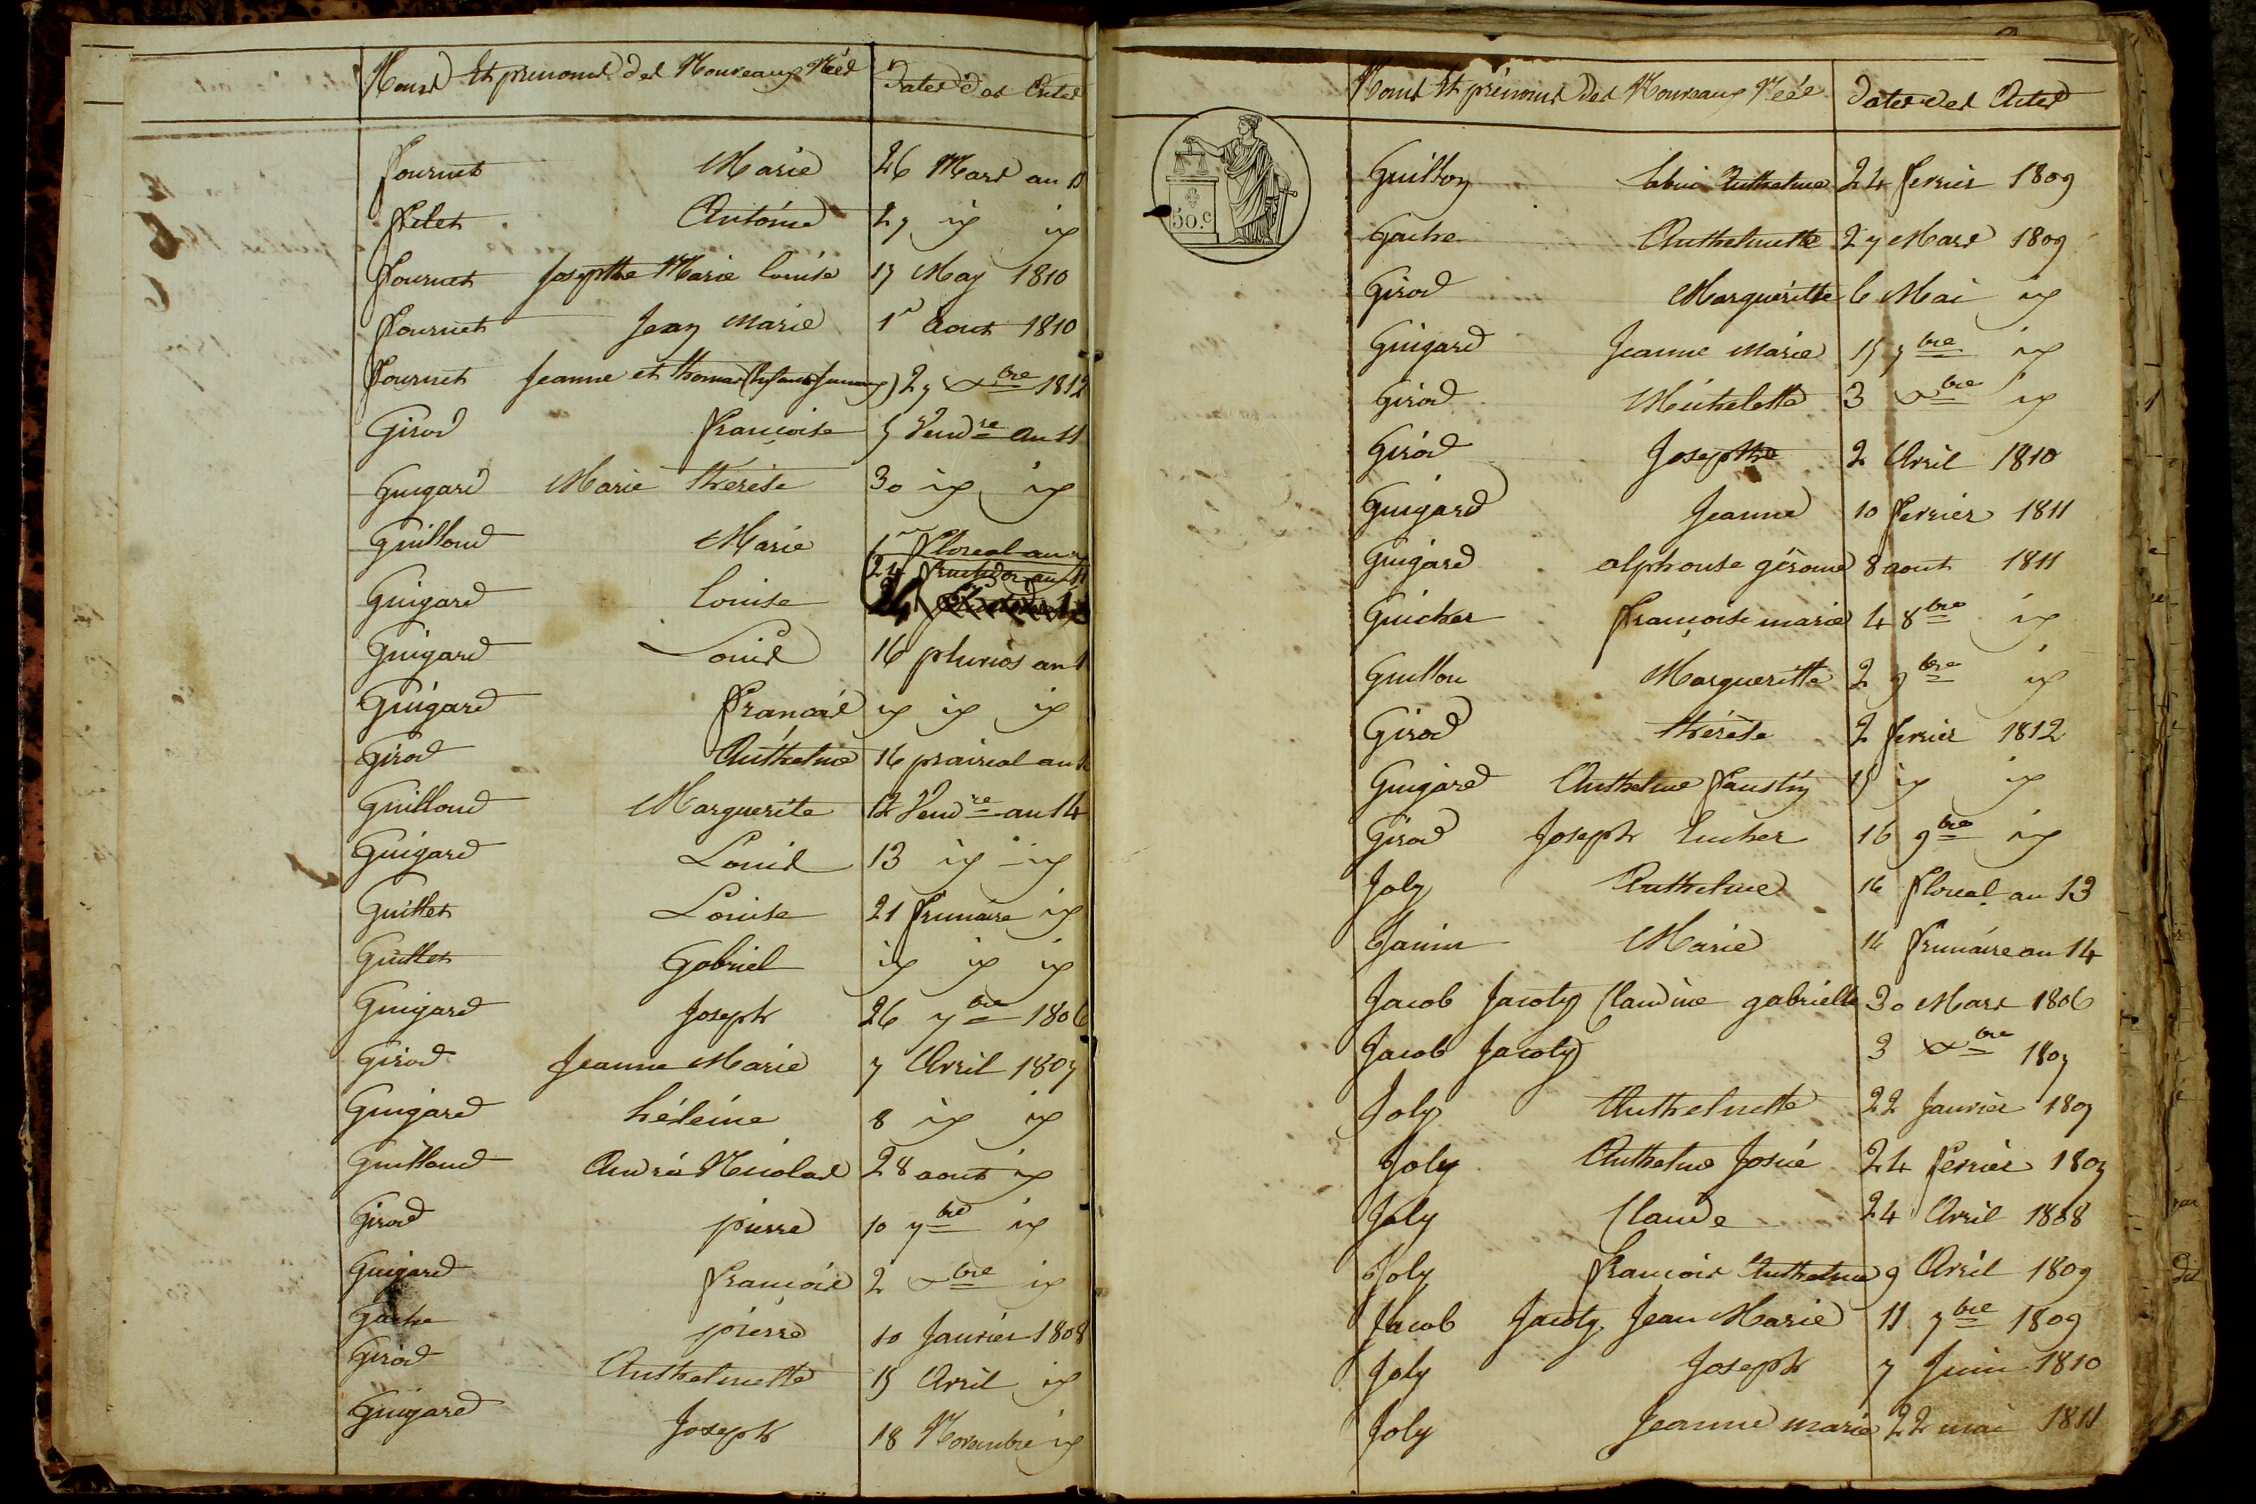 Noms et prenoms des Nouveaux Nées Dates des Actes
fournet Marie 26 Mars au
filet Antoine 27 id id
fournet Josepthe Marie Louise 17 May 1810
fournet Jean Marie 1r Aout 1810
fournet Jeanne et thomas 27 Xbre 1812
Girod françoise 5 Vendre an 11
Guigard Marie thérèse 30 id id
Guilloud Marie 1er floreal an
24 fructidor an 11
Guigard Louise 24
Guigard Louis 16 pluvios an 1
Guigard françois id id id
Girod Anthelme 16 prairial an
Guilloud Marguerite 12 Vendre an 14
Guigard Louis 13 id id
Guillet Louise 21 frimaire id
Guillet Gabriel id id id
Guigard Joseph 26 7bre 1806
Girod Jeanne Marie 7 Avril 1807
Guigard héleine 8 id id
Guilloud André Nicolas 28 aout id
Girod pierre 10 7bre id
Guigard françois 2 Xbre id
Gache pierre 10 Janvier 1808
Girod Anthelmette 15 Avril id
Guigard Joseph 18 Novembre id
Noms et prénoms des Nouveaux Néés Dates des Actes
50.c
Guilloy Anthelme 24 fevrier 1809
Gache Anthelmette 27 Mars 1809
Girod Marguéritte 6 Mai id
Guigard Jeanne Marie 15 7bre id
Girod Michelette 3 Xbre id
Girod Josepthe 2 Avril 1810
Guigard Jeanne 10 fevrier 1811
Guigard alphonse gérome 8 aout 1811
Guicher françoise marie 4 8bre id
Guillou Margueritte 2 9bre id
Girod thérèse 2 fevrier 1812
Guigard Anthelme faustin 15 id id
Girod Joseph Eucher 16 9bre id
Joly Anthelme 16 floreal an 13
Janin Marie 14 frimaire an 14
Jacob Jacoty Claudine gabrielle 30 Mars 1806
Jacob Jacoty 3 Xbre 1807
Joly Anthelmette 22 Janvier 1807
Joly Anthelme Josué 24 fevrier 1807
Joly Claude 24 Avril 1808
Joly françois Anthelme 9 Avril 1809
Jacob Jacoty Jean Marie 11 7bre 1809
Joly Joseph 7 Juin 1810
Joly Jeanne marie 22 mai 1811